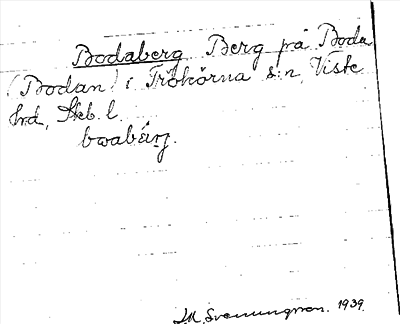 Bodaberg Berg på Boda
(Bodan) i Trökörna s:n, Viste
hrd, Skb. l.
bwabärj.
M. Svenungsson. 1939.